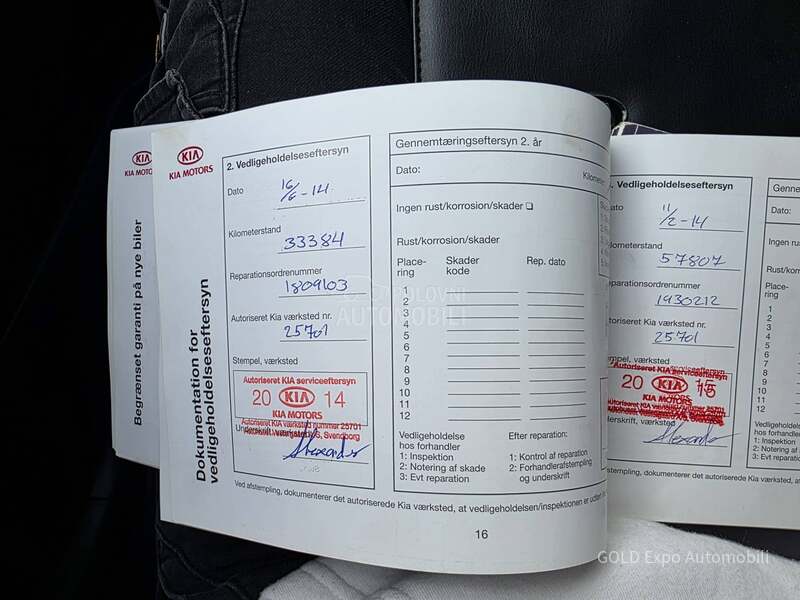 KIA
KIA MOTORS
Begrænset garanti på nye biler
KIA
KIA MOTORS
Dokumentation for
vedligeholdelseseftersyn
2. Vedligeholdelseseftersyn
Dato 16/6-14
Kilometerstand
33384
Reparationsordrenummer
1809103
Autoriseret Kia værksted nr.
25701
Stempel, værksted
Autoriseret KIA serviceeftersyn
20 KIA 14
KIA MOTORS
Autoriseret KIA værksted nummer 25701
Svendborg
Underskrift, værksted
Ved afstempling, dokumenterer det autoriserede Kia værksted, at vedligeholdelsen/inspektionen er udført
Gennemtæringseftersyn 2. år
Dato:
Kilometer
Ingen rust/korrosion/skader
Rust/korrosion/skader
Place-
ring
Skader
kode
Rep. dato
1
2
3
4
5
6
7
8
9
10
11
12
Vedligeholdelse
hos forhandler
1: Inspektion
2: Notering af skade
3: Evt reparation
Efter reparation:
1: Kontrol af reparation
2: Forhandlerafstempling
og underskrift
16
Vedligeholdelseseftersyn
Dato 11/2-14
Kilometerstand
57807
Reparationsordrenummer
1930212
Autoriseret Kia værksted nr.
25701
Stempel, værksted
Autoriseret KIA serviceeftersyn
20 KIA 15
KIA MOTORS
Underskrift, værksted
Ved afstempling, dokumenterer det autoriserede Kia værksted, at ved
Genne
Dato:
Ingen rust
Rust/kor
Place-
ring
1
2
3
4
5
6
7
8
9
10
11
12
Vedligeho
hos forha
1: Inspekt
2: Noterin
3: Evt rep
POLOVNI
AUTOMOBILI
GOLD Expo Automobili